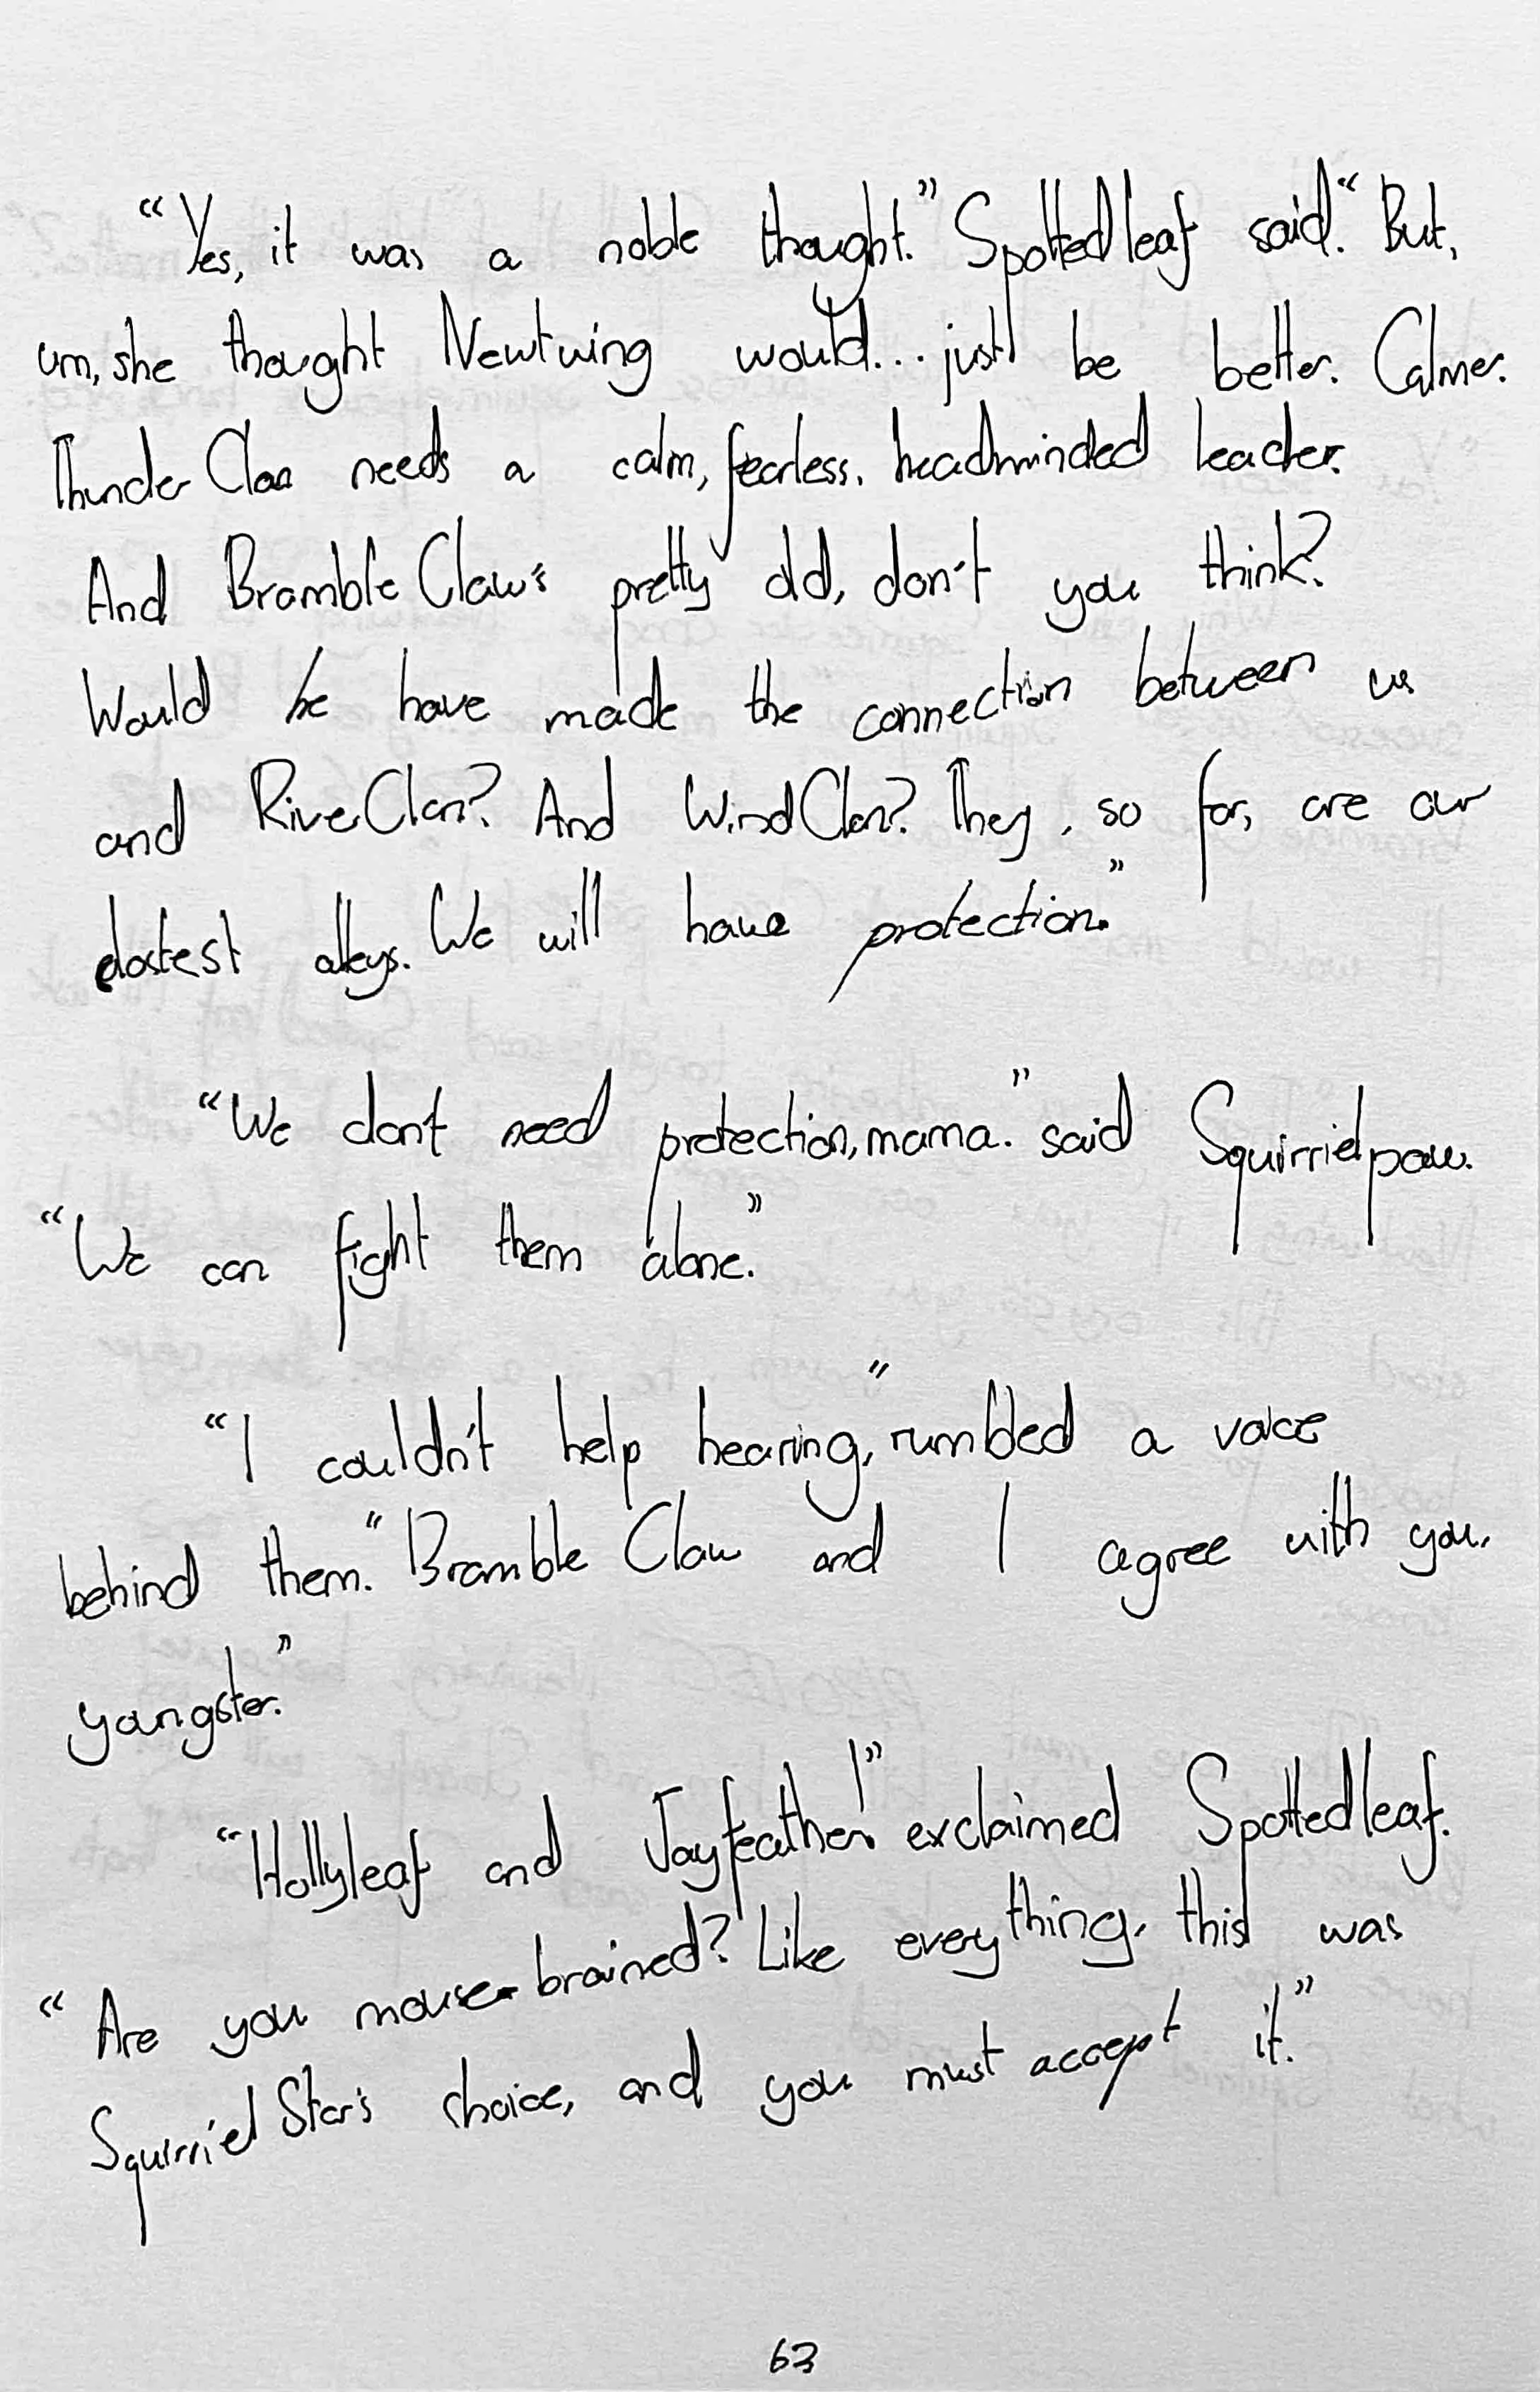 “Yes, it was a noble thought.” Spottedleaf said. “But,
um, she thought Newtwing would... just be better. Calmer.
ThunderClan needs a calm, fearless, headminded leader.
And Bramble Claw's pretty old, don't you think?
Would he have made the connection between us
and RiverClan? And WindClan? They, so far, are our
clostest alleys. We will have protection.”
“We don't need protection, mama.” said Squirrielpaw.
“We can fight them alone.”
“I couldn't help hearing,” rumbled a voice
behind them. “Bramble Claw and I agree with you,
youngster.”
“Hollyleaf and Jayfeather!” exclaimed Spottedleaf.
“Are you mouse-brained? Like everything, this was
Squirriel Star's choice, and you must accept it.”
63